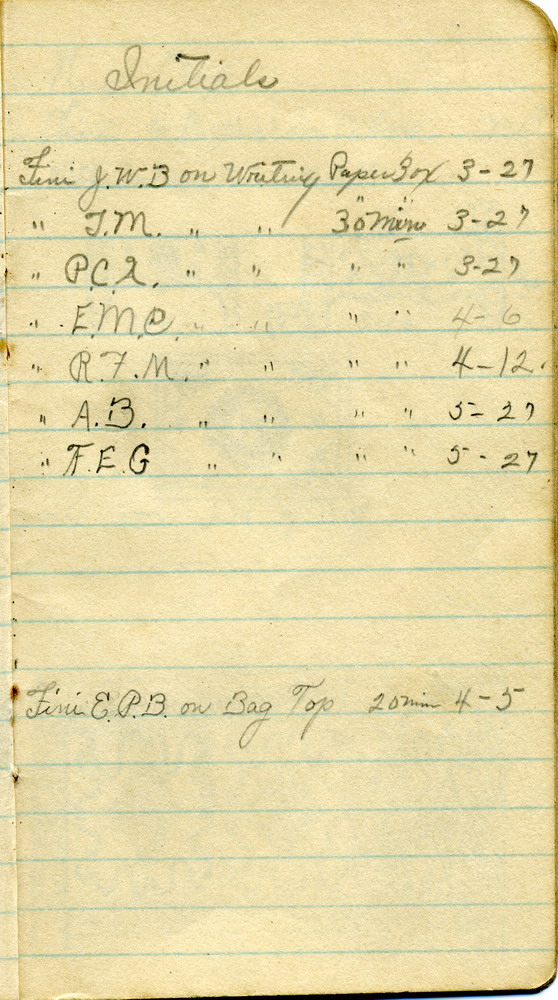 Initials
Fini J.W.B on Writing Paper Box 3-27
" T.M. " " 30 min 3-27
" P.C.R. " " " " 3-27
" E.M.C. " " " " 4-6
" R.F.M. " " " " 4-12.
" A.B. " " " " 5-27
" F.E.G " " " " 5-27
Fini E.P.B. on Bag Top 20 min 4-5